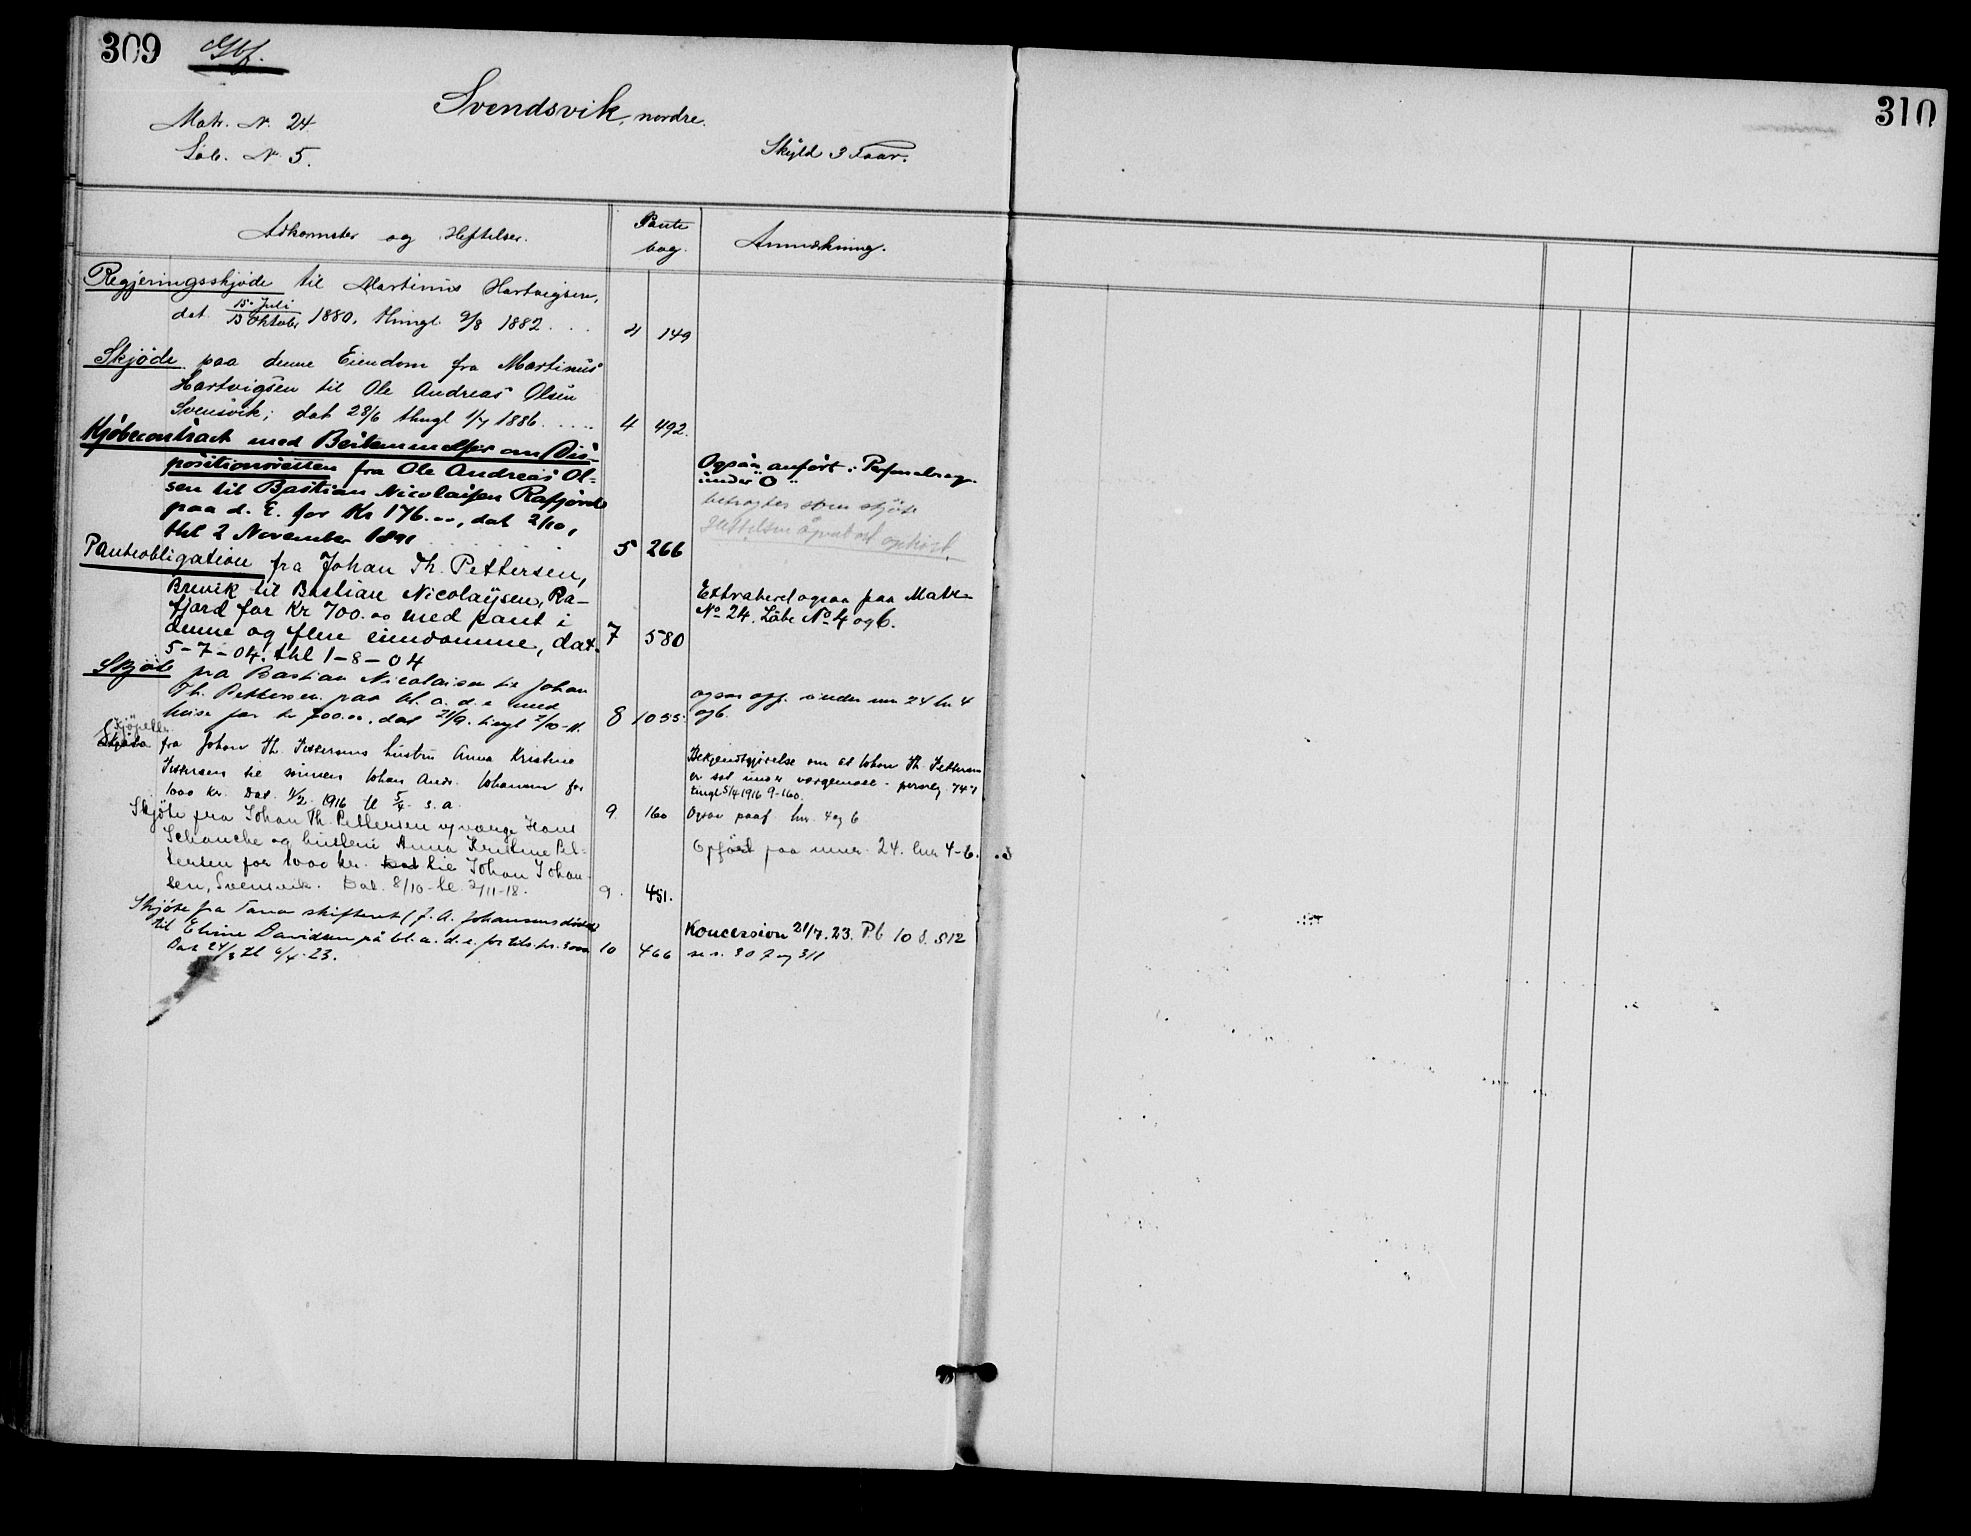 309
310
Svendsvik, nordre.
Matr. N. 24.
Løb. N. 5.
Skyld 3 Øre.
Adkomster og Heftelser.
Pante
bog.
Anmærkning.
Regjeringsskjøde til Martinus Hartvigsen,
dat. 15 Juli
13 Oktober 1880, thingl. 9/8 1882 . . .
4 149
Skjøde paa denne Eiendom fra Martinus
Hartvigsen til Ole Andreas Olsen
Svensvik; dat 28/6 thngl 1/7 1886. . . . .
4 492.
Kjøbecontract med Bestemmelser om Dis-
positionsretten fra Ole Andreas Ol-
sen til Bastian Nicolaisen Rafjord
paa d. E. for Kr 176.00, dat 2/10,
thl 2 November 1891
5 266
Ogsaa anført i
under "O"
betragtes som skjøte
Pantobligation fra Johan Th. Pettersen,
Brevik til Bastian Nicolaysen, Ra-
fjord for Kr 700.00 med pant i
denne og flere eiendomme, dat.
5-7-04. thl 1-8-04
7 580
Extraheret ogsaa paa Matr.
No 24. Løbe No 4 og 6.
Skjøte fra Bastian Nicolaisen til Johan
Th. Pettersen paa bl. a. d. e med
huse for kr 700.00, dat 21/9. tingl 2/10-11.
8 1055.
ogsaa opf. under mn 24 ln 4
og 6.
Skjøte fra Johan Th. Pettersens hustru Anna Kristine
Pettersen til sønnen Johan Andr. Johansen for
1000 kr. Dat. 11/2 1916 tl 5/4 s. a.
9. 160
Bekjendtgjørelse om at Johan Th. Pettersen
er sat under vergemaal -
tingl 5/4 1916 9-160.
Ogsaa paaf. lnr. 4 og 6
Skjøte fra Johan Th. Pettersen v/ verge Hans
Schanche og hustru Anna Kristine Pet-
tersen for 1000 kr. Dat til Johan Johan-
sen, Svensvik. Dat. 8/10 - tl. 2/11-18.
9. 451.
Opført paa mnr. 24. lnr 4-6.
Skjøte fra Tana skifteret (J. A. Johansens dødsbo)
til Eline Davidsen på bl. a. d. e. for tils. kr. 3000
Dat 24/3 tl 6/4-23.
10 466
Koncession 21/7.23. P.b 10 s. 512
se s. 307 og 311